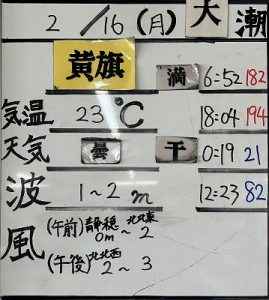 2/16(月) 大潮
黄旗 満 6:52 182
気温 23℃ 18:04 194
天気 曇 干 0:19 21
波 1~2m 12:23 82
風 (午前) 静穏 0m ~ 北北東 2
(午後) 北北西 2~3